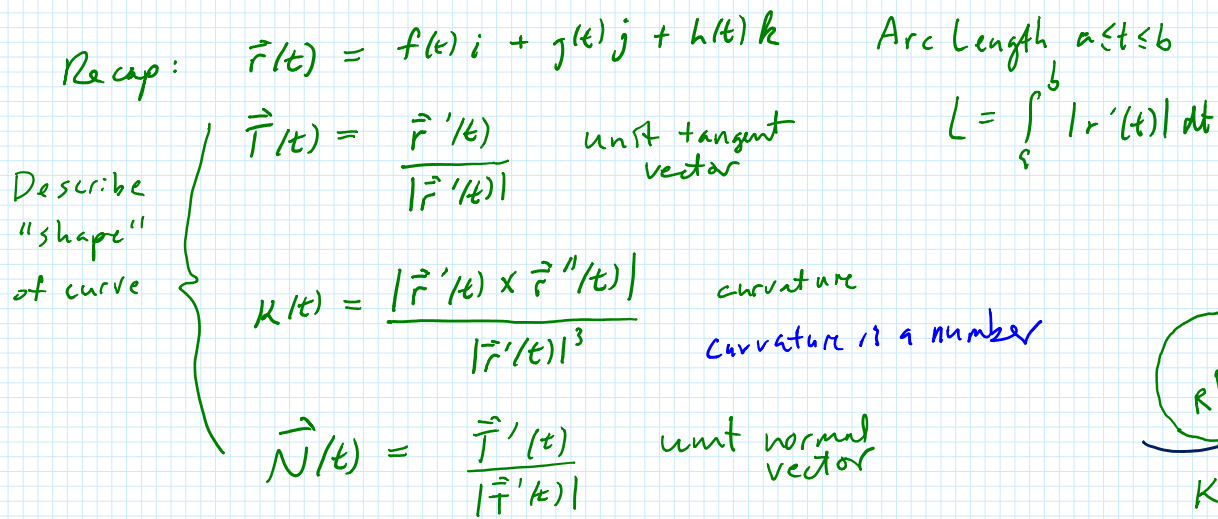 Recap: r⃗(t) = f(t) i + g(t) j + h(t) k
Arc Length a≤t≤b
L = ∫_a^b |r'(t)| dt
Describe
"shape"
of curve
T⃗(t) = r⃗'(t) / |r⃗'(t)| unit tangent
vector
K(t) = |r⃗'(t) × r⃗''(t)| / |r⃗'(t)|³ curvature
curvature is a number
N⃗(t) = T⃗'(t) / |T⃗'(t)| unit normal
vector
R
K